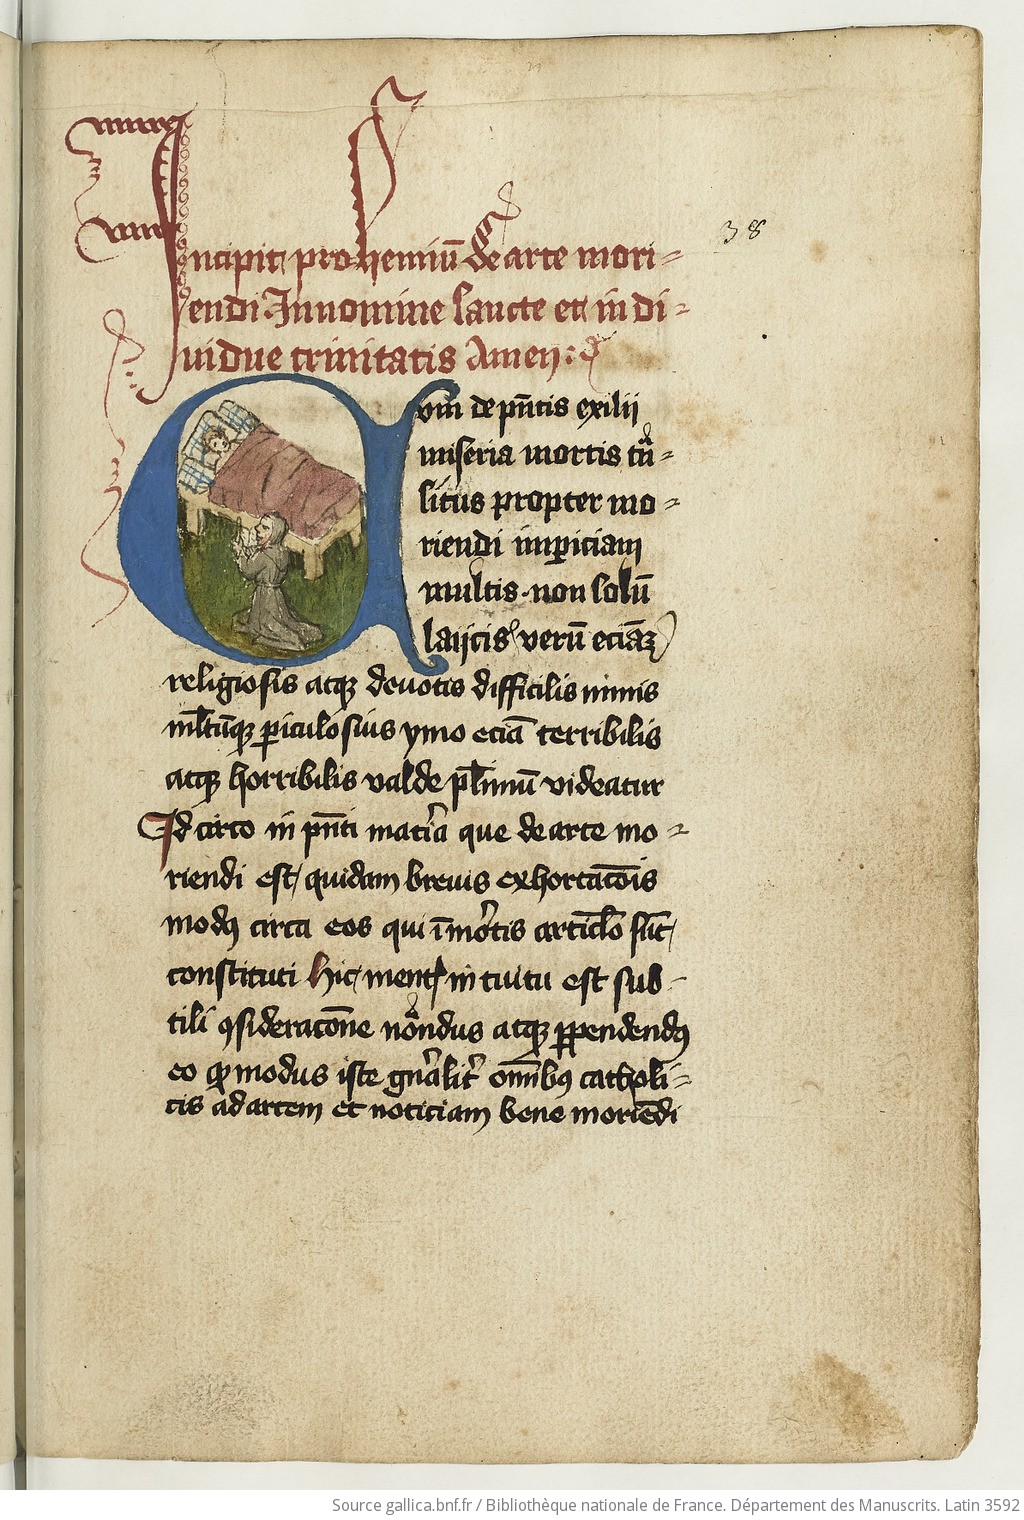 38
Incipit prohemiū de arte mori=
endi. In nomine sancte et in di=
uidue trinitatis Amen:
Cum de pn̄tis exilii
miseria mortis trā=
situs propter mo=
riendi imꝑiciam
multis non solū
laijcis verū eciā
religiosis atqꝫ deuotis difficilis nimis
ml̄tūqꝫ ꝑiculosius ymo eciā terribilis
atqꝫ horribilis valde pl̄imū videatur
Idcirco in pn̄ti mat̄ia que de arte mo=
riendi est quidam breuis exhortac̄ois
modꝰ circa eos qui ī mortis artic̄lo sūt
constituti hic mentꝭ intuitu est sub-
tili ꝯsiderac̄one notandus atqꝫ ꝑpendendꝰ
eo ꝙ modus iste gn̄alit̄ om̄ibꝰ catholi=
cis ad artem et noticiam bene moriēdi
Source gallica.bnf.fr / Bibliothèque nationale de France. Département des Manuscrits. Latin 3592